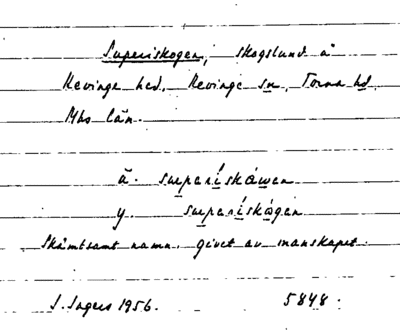 Superiskogen, skogslund å
Revinge hed, Revinge sn, Torna hd,
Mhs län.
ä. superiskåwen
y. superiskågen
Skämtsamt namn, givet av manskapet.
S. Ingers 1956. 5848.